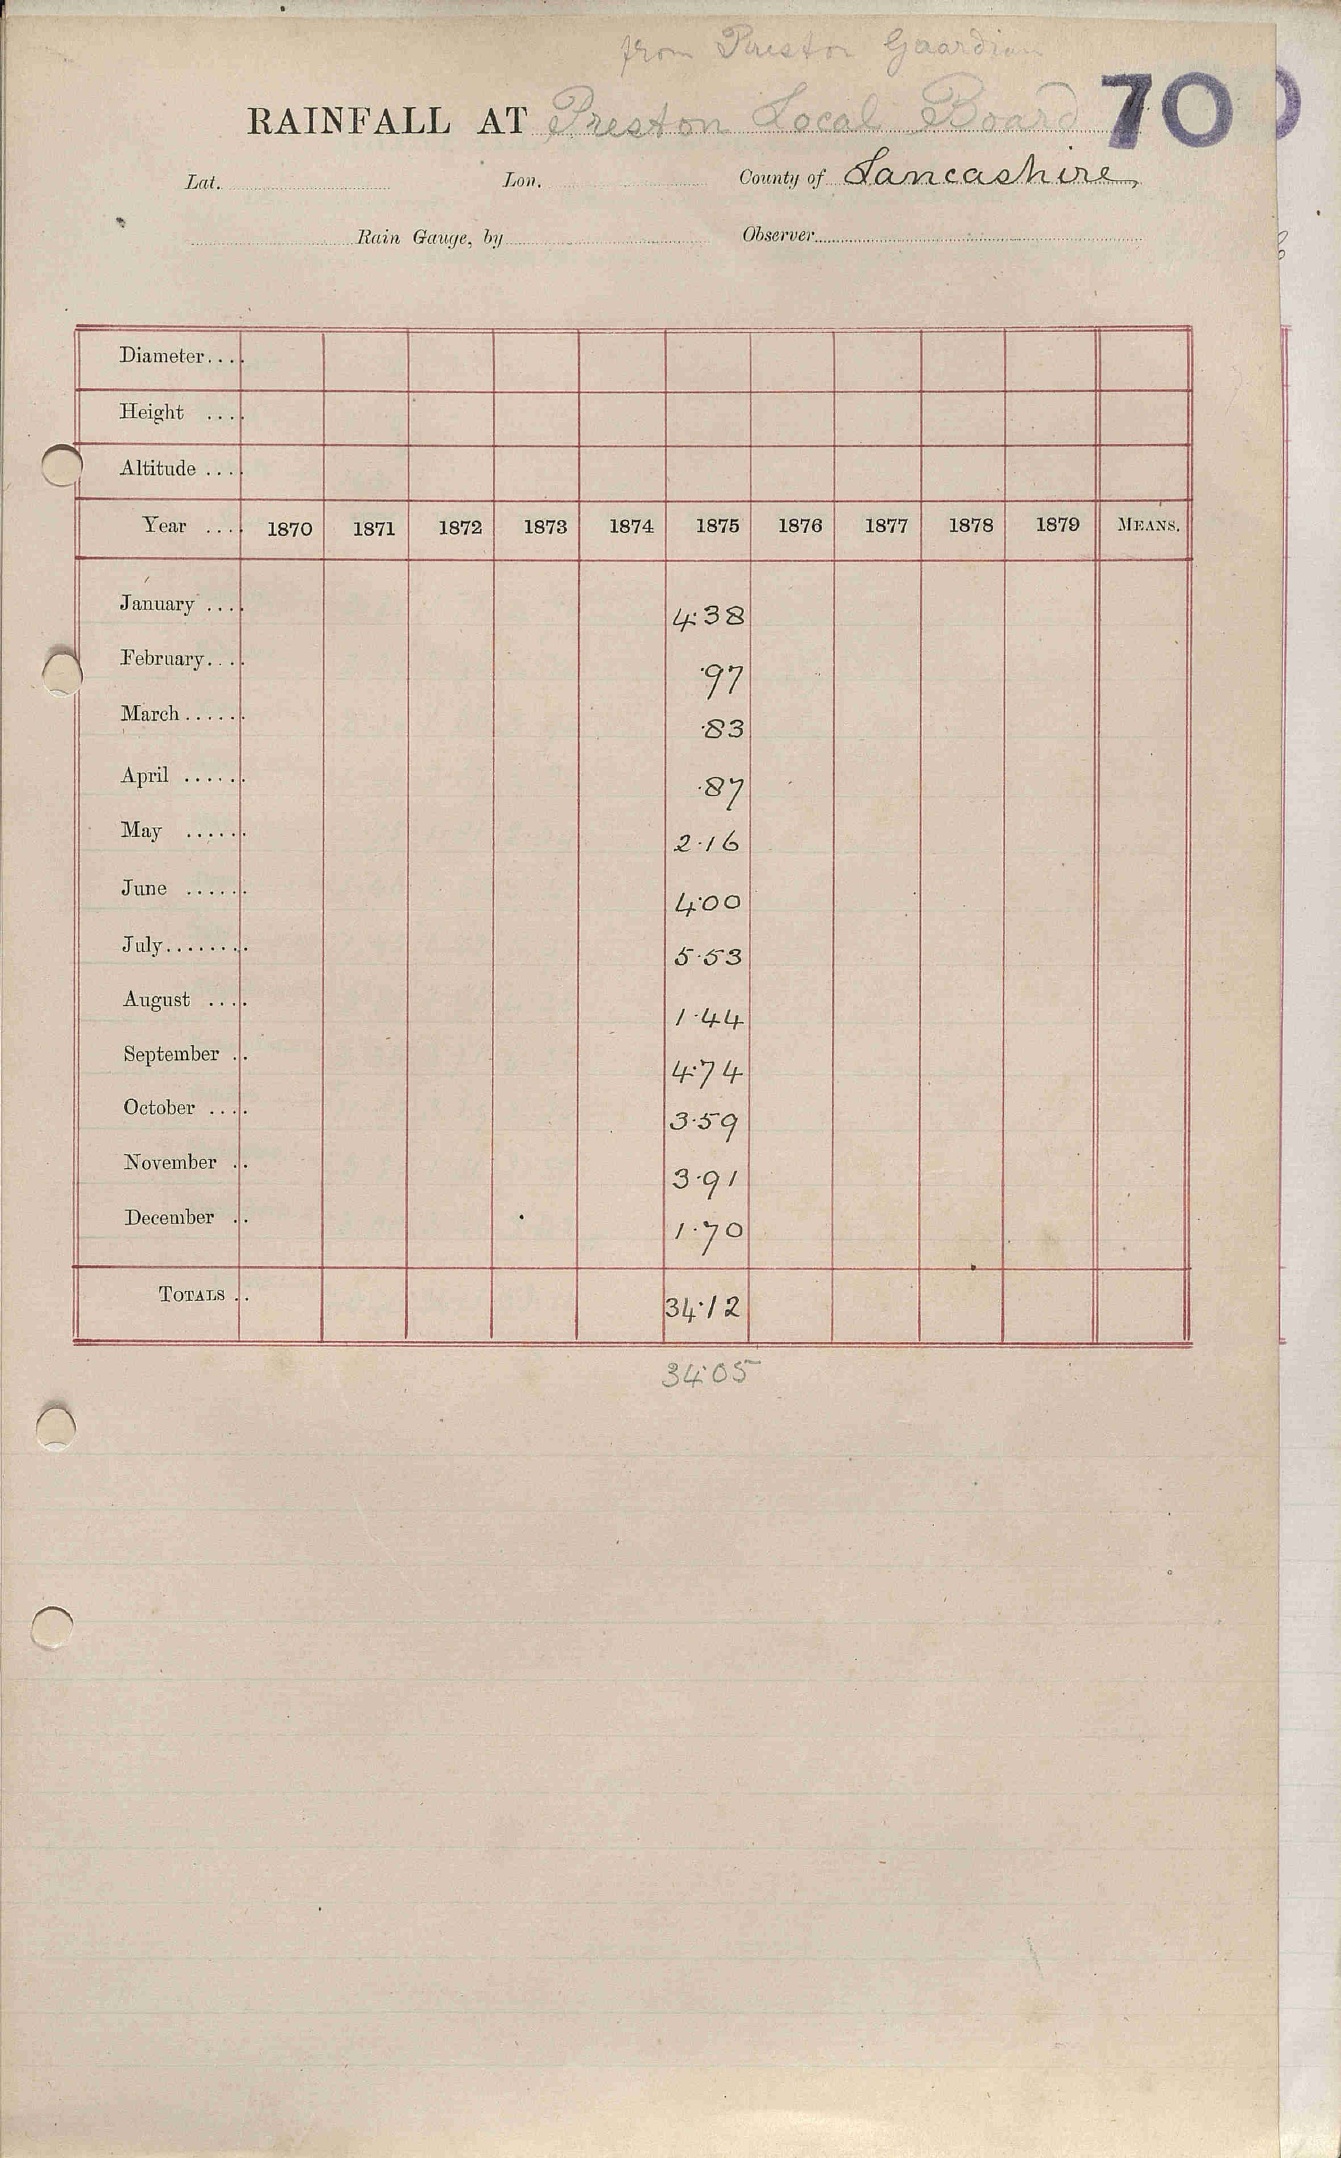 from Preston Guardian
RAINFALL AT Preston Local Board 70
Lat. Lon. County of Lancashire
Rain Gauge, by Observer
Diameter....
Height ....
Altitude ....
Year .... 1870 1871 1872 1873 1874 1875 1876 1877 1878 1879 MEANS.
January .... 4·38
February.... ·97
March...... ·83
April ...... ·87
May ...... 2·16
June ...... 4·00
July........ 5·53
August .... 1·44
September .. 4·74
October .... 3·59
November .. 3·91
December .. 1·70
TOTALS .. 34·12
34·05